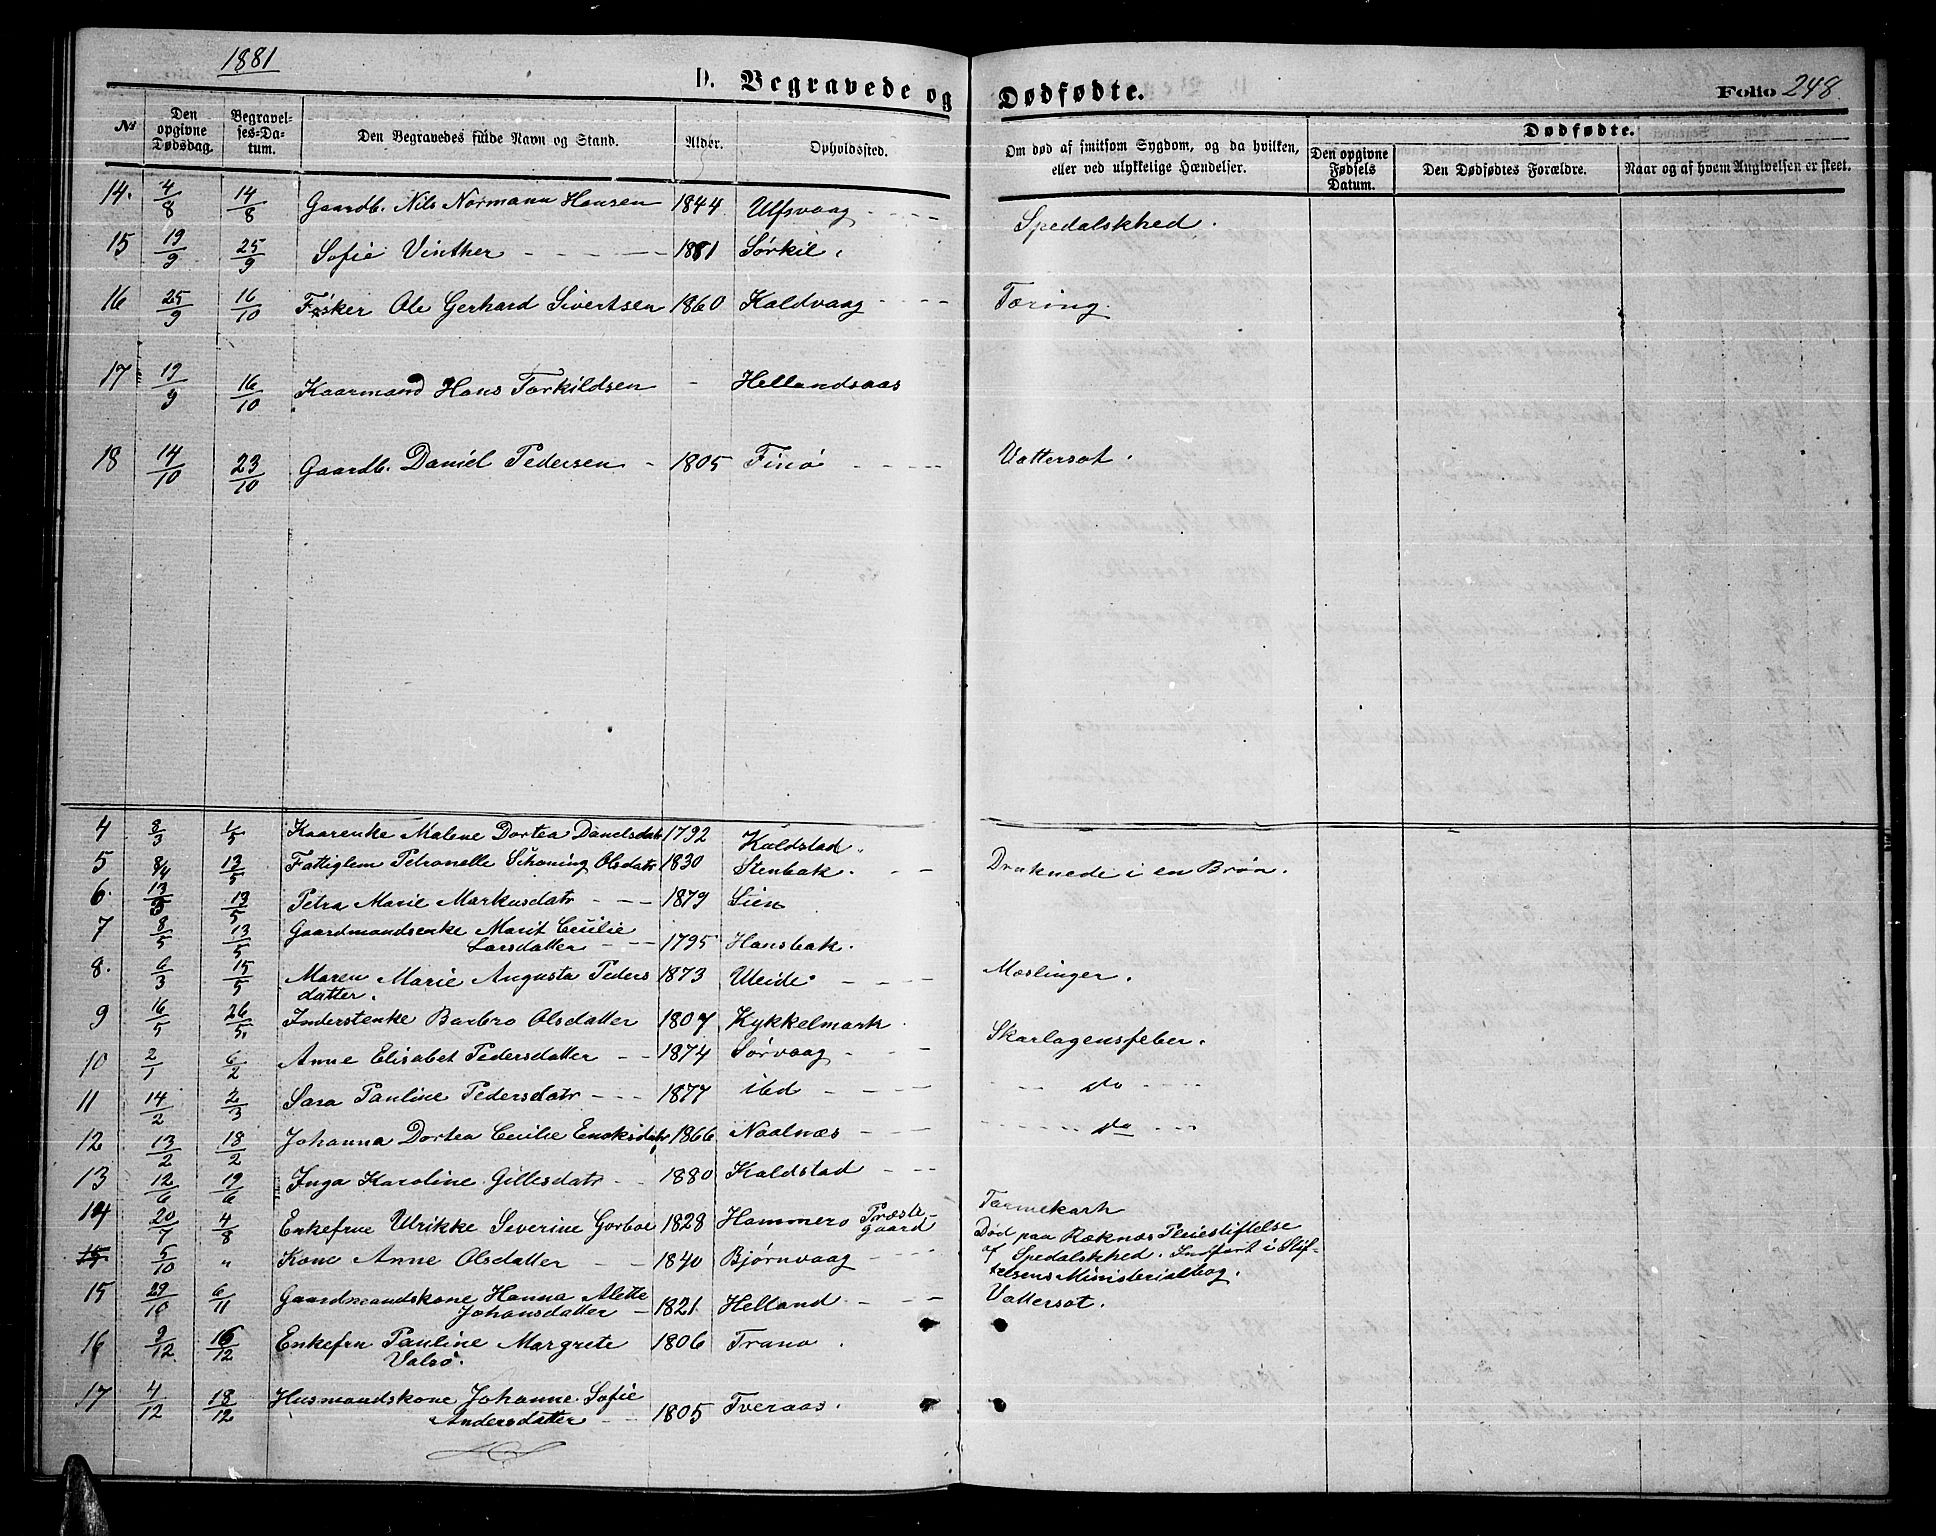 1881
D. Begravede og Dødfødte. Folio 248
№ Den opgivne Dødsdag. Begravelses-Datum. Den Begravedes fulde Navn og Stand. Alder. Opholdssted. Om død af smitsom Sygdom, og da hvilken, eller ved ulykkelige Hændelser. Dødfødte. Den opgivne Fødsels Datum. Den Dødfødtes Forældre. Naar og af hvem Angivelsen er skeet.
14. 4/8 14/8 Gaardb. Nils Normann Hansen 1844 Ulfsvaag - - - Spedalskhed.
15 19/9 25/9 Sofie Vinther - - - 1881 Sørkil.
16 25/9 16/10 Fisker Ole Gerhard Sivertsen 1860 Kaldvaag - - - Tæring.
17 19/9 16/10 Kaarmand Hans Torkildsen - Hellandsaas
18 14/10 23/10 Gaardb. Daniel Pedersen - 1805 Finø - - - Vattersot.
4 8/3 1/5 Kaarenke Malene Dortea Danelsdatr 1792 Kaldstad.
5 8/4 13/5 Fattiglem Petronelle Schøning Olsdatr 1830 Stenbak. - - Druknede i en Brøn.
6. 13/3 13/5 Petra Marie Markusdatr - - - 1879 Sien
7 8/5 13/5 Gaardmandsenke Marit Cecilie
Larsdatter - - - 1795 Hansbak.
8. 6/3 15/5 Maren Marie Augusta Peders 1873 Uleide - - - Mæslinger.
datter.
9 16/5 26/5 Inderstenke Barbro Olsdatter 1807 Kykkelmark.
10 2/1 6/2 Anne Elisabet Pedersdatter - - 1874 Sørvaag - - - Skarlagensfeber.
11 14/2 2/3 Sara Pauline Pedersdatr - - - 1877 ibd - - - do
12 13/2 18/2 Johanna Dortea Cecilie Enoksdatr 1866 Naalnæs - - - do
13 12/6 19/6 Inga Karoline Gillesdatr - - 1880 Kaldstad - - -
14 20/7 4/8 Enkefrue Ulrikke Severine Gorboe 1828 Hammerø Præstegaard Tarmekarh
15 5/10 " Kone Anne Olsdatter - - 1840 Bjørnvaag - - - Død paa Reknæs Pleiestiftelse
af Spedalskhed. Indført i Stif-
telsens Ministerialbog.
15 29/10 6/11 Gaardmandskone Hanna Alette
Johansdatter - 1821 Helland - - - Vattersot.
16 9/12 16/12 Enkefru Pauline Margrete 1806 Tranø.
Valsø.
17 4/12 18/12 Husmandskone Johanne Sofie
Andersdatter - - 1805 Tveraas.